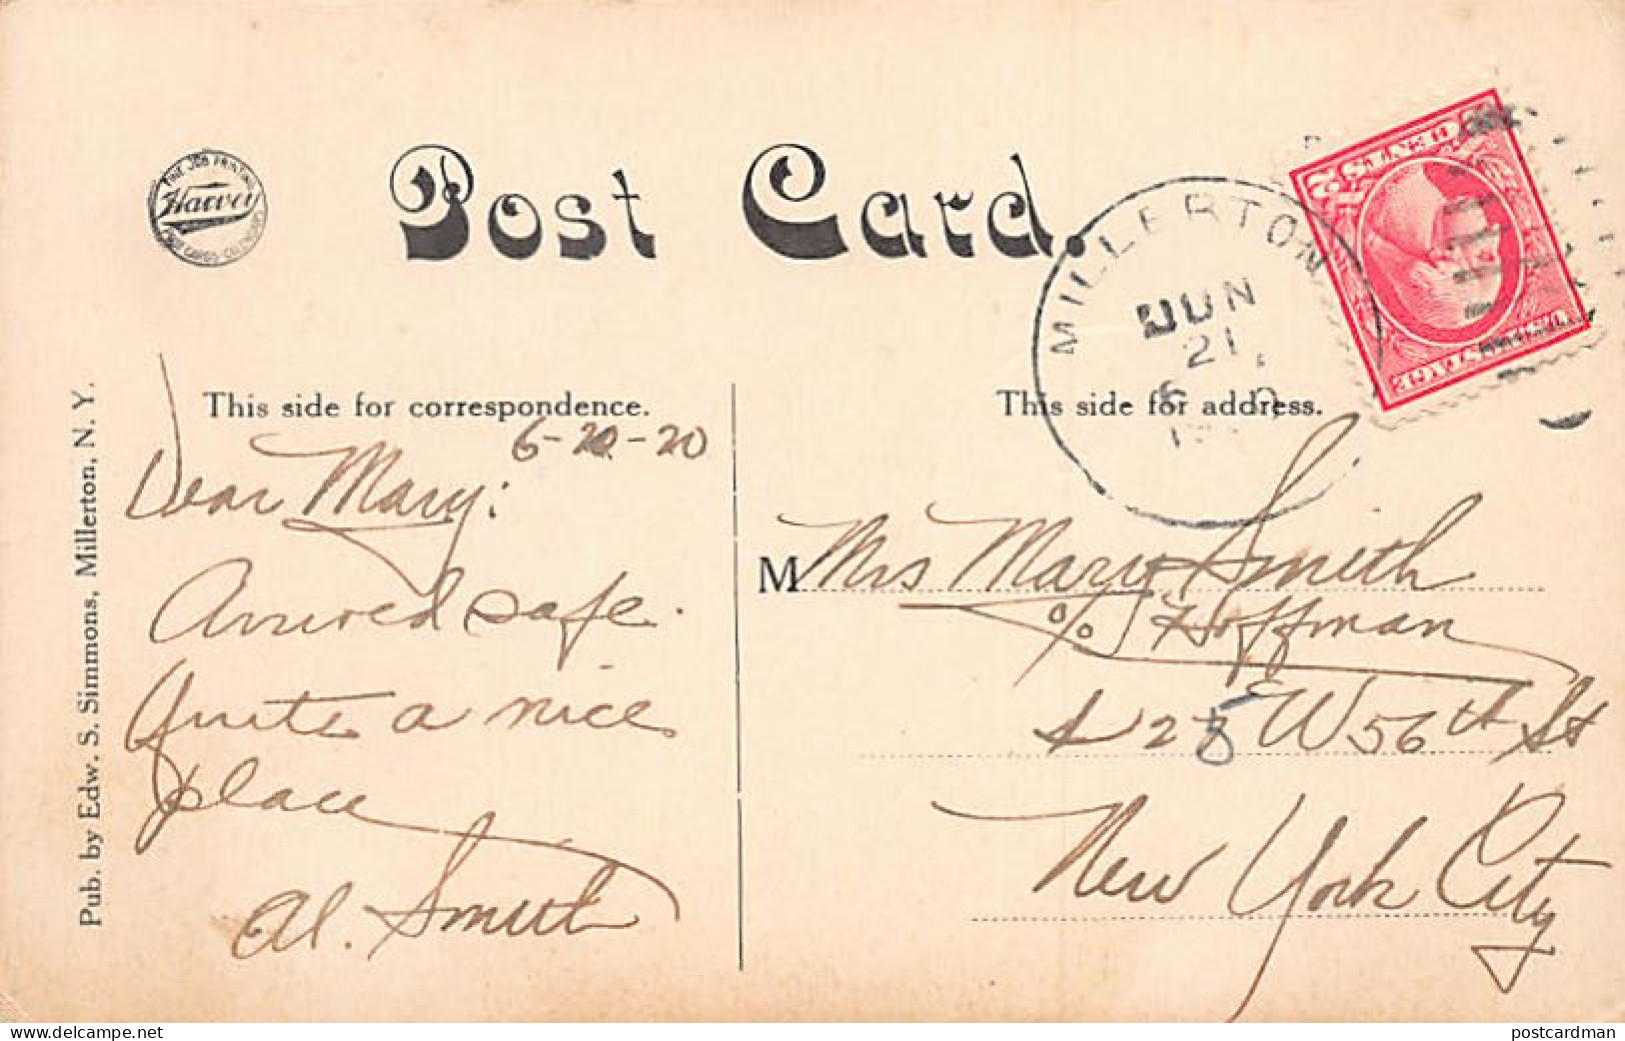 FINE JOB PRINTING
Harvey
POST CARDS-CALENDARS
Post Card.
MILLERTON
JUN
21
This side for correspondence.
This side for address.
6-20-20
Dear Mary:
Arrived safe.
Quite a nice
place
Al. Smith
M Mrs Mary Smith
c/o Hoffman
W 56th St
New York City
Pub. by Edw. S. Simmons, Millerton, N. Y.
delcampe.net
postcardman